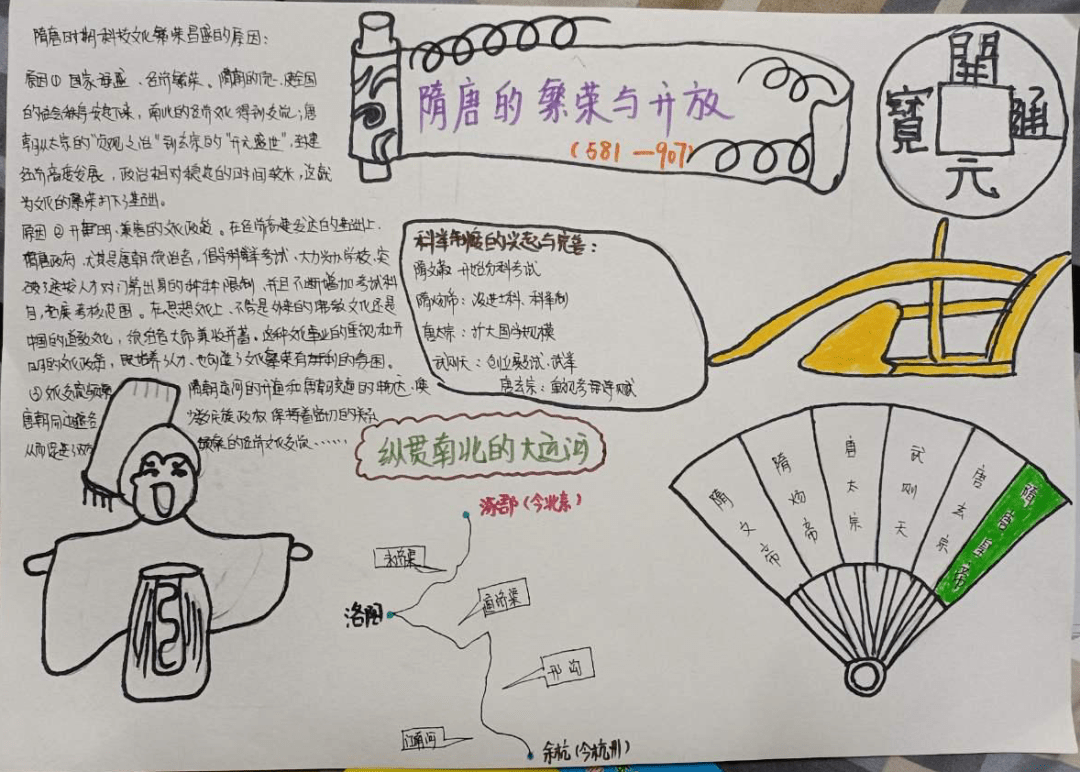 隋唐时期科技文化繁荣昌盛的原因：
原因① 国家强盛、经济繁荣。隋朝的统一，使全国
的社会秩序安定下来，南北的经济文化得到交流；唐
朝从太宗的“贞观之治”到玄宗的“开元盛世”，封建
经济高度发展，政治相对稳定的时间较长，这就
为文化的繁荣打下了基础。
原因② 开明、兼容的文化政策。在经济高度发达的基础上，
隋唐政府，尤其是唐朝统治者，倡导科举考试、大力兴办学校、突
破了选拔人才对门第出身的种种限制，并且不断增加考试科
目，拓展考核范围。在思想文化上，不管是外来的佛教文化还是
中国的道教文化，统治者大都兼收并蓄。这种文化事业的重视和开
明的文化政策，既培养了人才，也创造了文化繁荣有利的氛围。
③ 文化交流频繁 隋朝运河的开通和唐朝交通的发达，使
唐朝同边疆各 少数民族政权保持着密切的关系
从而促进了双方 频繁的经济文化交流……
隋唐的繁荣与开放
（581—907）
開
元
通
寶
科举制度的兴起与完善：
隋文帝 开始分科考试
隋炀帝：进士科、科举制
唐太宗：扩大国学规模
武则天：创立殿试、武举
唐玄宗：重视考 诗赋
纵贯南北的大运河
涿郡（今北京）
永济渠
洛阳
通济渠
邗沟
江南河
余杭（今杭州）
隋文帝
隋炀帝
唐太宗
武则天
唐玄宗
隋唐皇帝